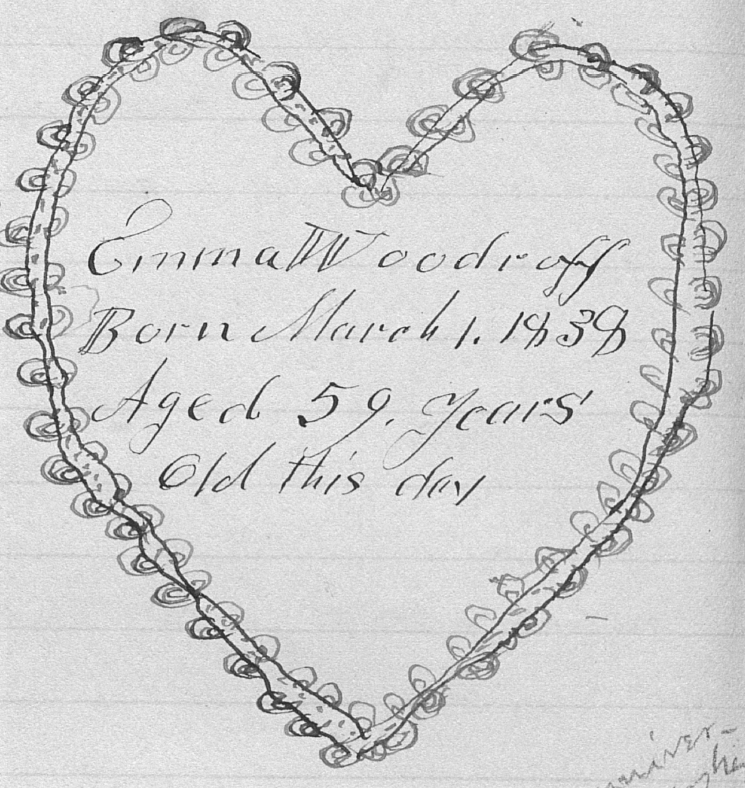 Emma W Woodroff
Born March 1. 1838
Aged 59. years
Old this day